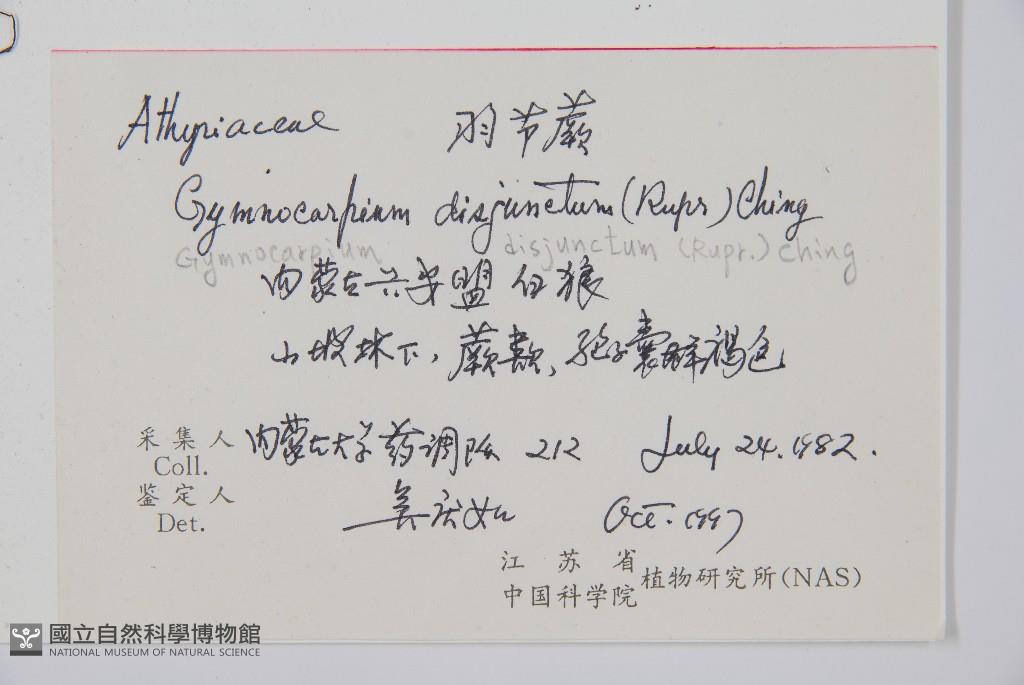 Athyriaceae 羽节蕨
Gymnocarpium disjunctum (Rupr) Ching
Gymnocarpium disjunctum (Rupr.) Ching
内蒙古兴安盟 白狼
山坡林下，蕨类，孢子囊群褐色
采集人 内蒙古大学药调队 212 July 24. 1982.
Coll.
鉴定人 吴庆如 Oct. 1997
Det.
江苏省
中国科学院 植物研究所(NAS)
國立自然科學博物館
NATIONAL MUSEUM OF NATURAL SCIENCE